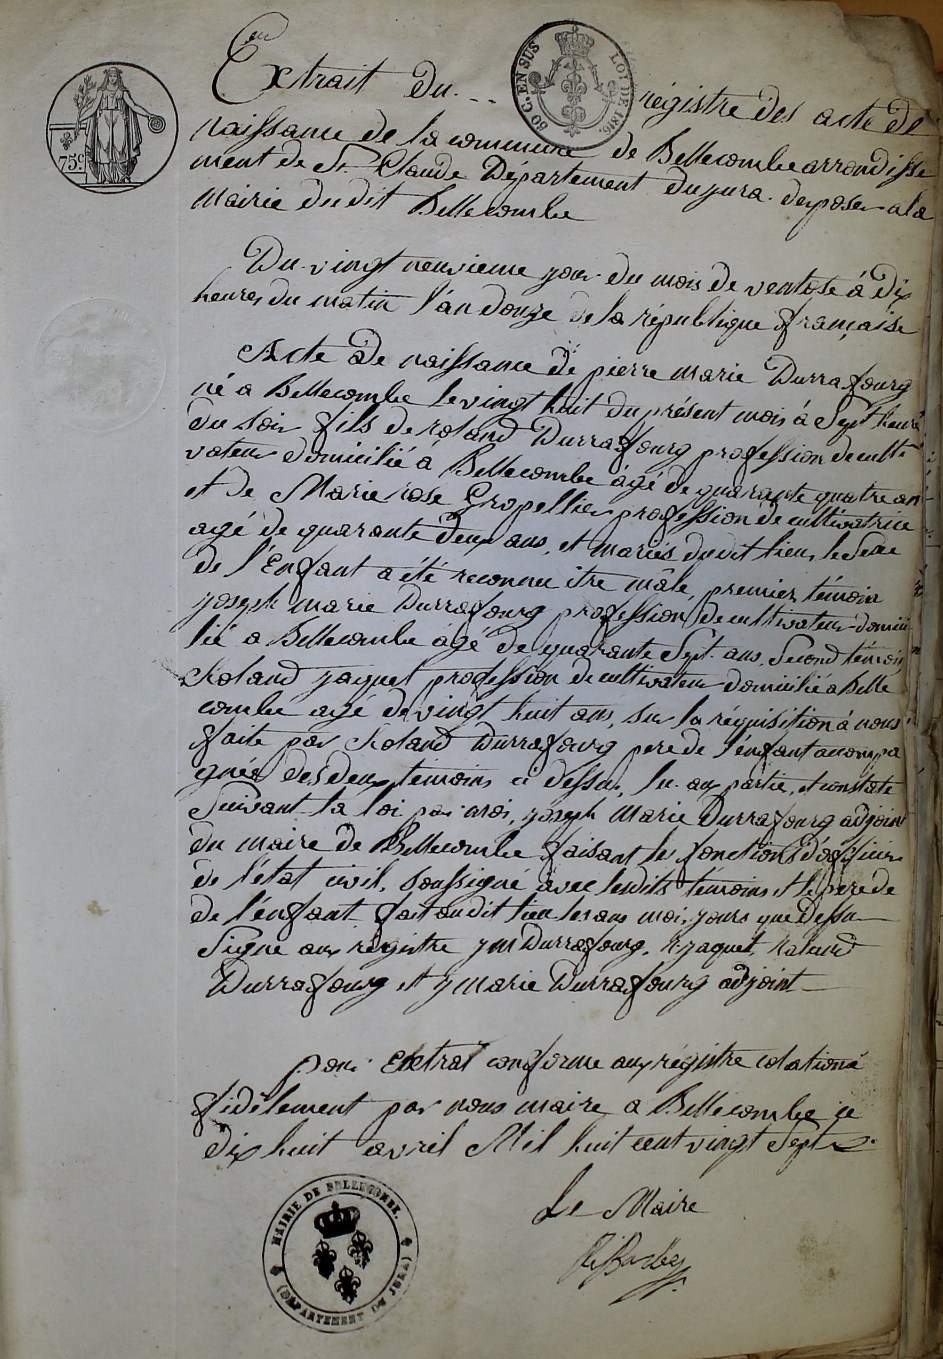 75c.
60 C. EN SUS
LOI DE 1816.
Extrait du registre des acte de
naissance de la commune de Bellecombe arrondisse
ment de St. Claude Département du jura deposer a la
Mairie du dit Bellecombe
Du vingt neuvieme jour du mois de ventose à dix
heures du matin l'an douze de la république française
Acte de naissance de pierre marie Durrafourg
né a Bellecombe le vingt huit du présent mois à Sept heure
du soir fils de roland Durrafourg profession de culti
vateur domicilié a Bellecombe âgé de quarante quatre an
et de Marie rose Gropellier profession de cultivatrice
agé de quarante deux ans, et mariés du dit lieu, le Sexe
de l'Enfant a été reconnu être mâle, premier témoin
joseph marie Durrafourg profession de cultivateur domici
lié a Bellecombe âgé de quarante Sept ans, Second témoin
Roland jaquet profession de cultivateur domicilié a Belle
combe agé de vingt huit ans, sur la réquisition à nous
faite par Roland Durrafourg pere de l'enfant acompa
gnée des deux témoins ci dessus, lu aux partie, et constaté
Suivant la loi par moi, joseph Marie Durrafourg adjoint
du maire de Bellecombe faisant les fonctions d'officier
de l'état civil, Soussigné avec lesdits témoins et le pere de
de l'enfant fait au dit lieu les ans moi, jours que dessu
Signé aux régistre jm Durrafourg, R jaquet, Raland
Durrafourg et j marie Durrafourg adjoint
pour Extrat conforme aux régistre colationé
fidèlement par nous maire a Bellecombe ce
dix huit avril Mil huit cent vingt Sept
Le Maire
MAIRIE DE BELLECOMBE.
(DÉPARTEMENT DU JURA)